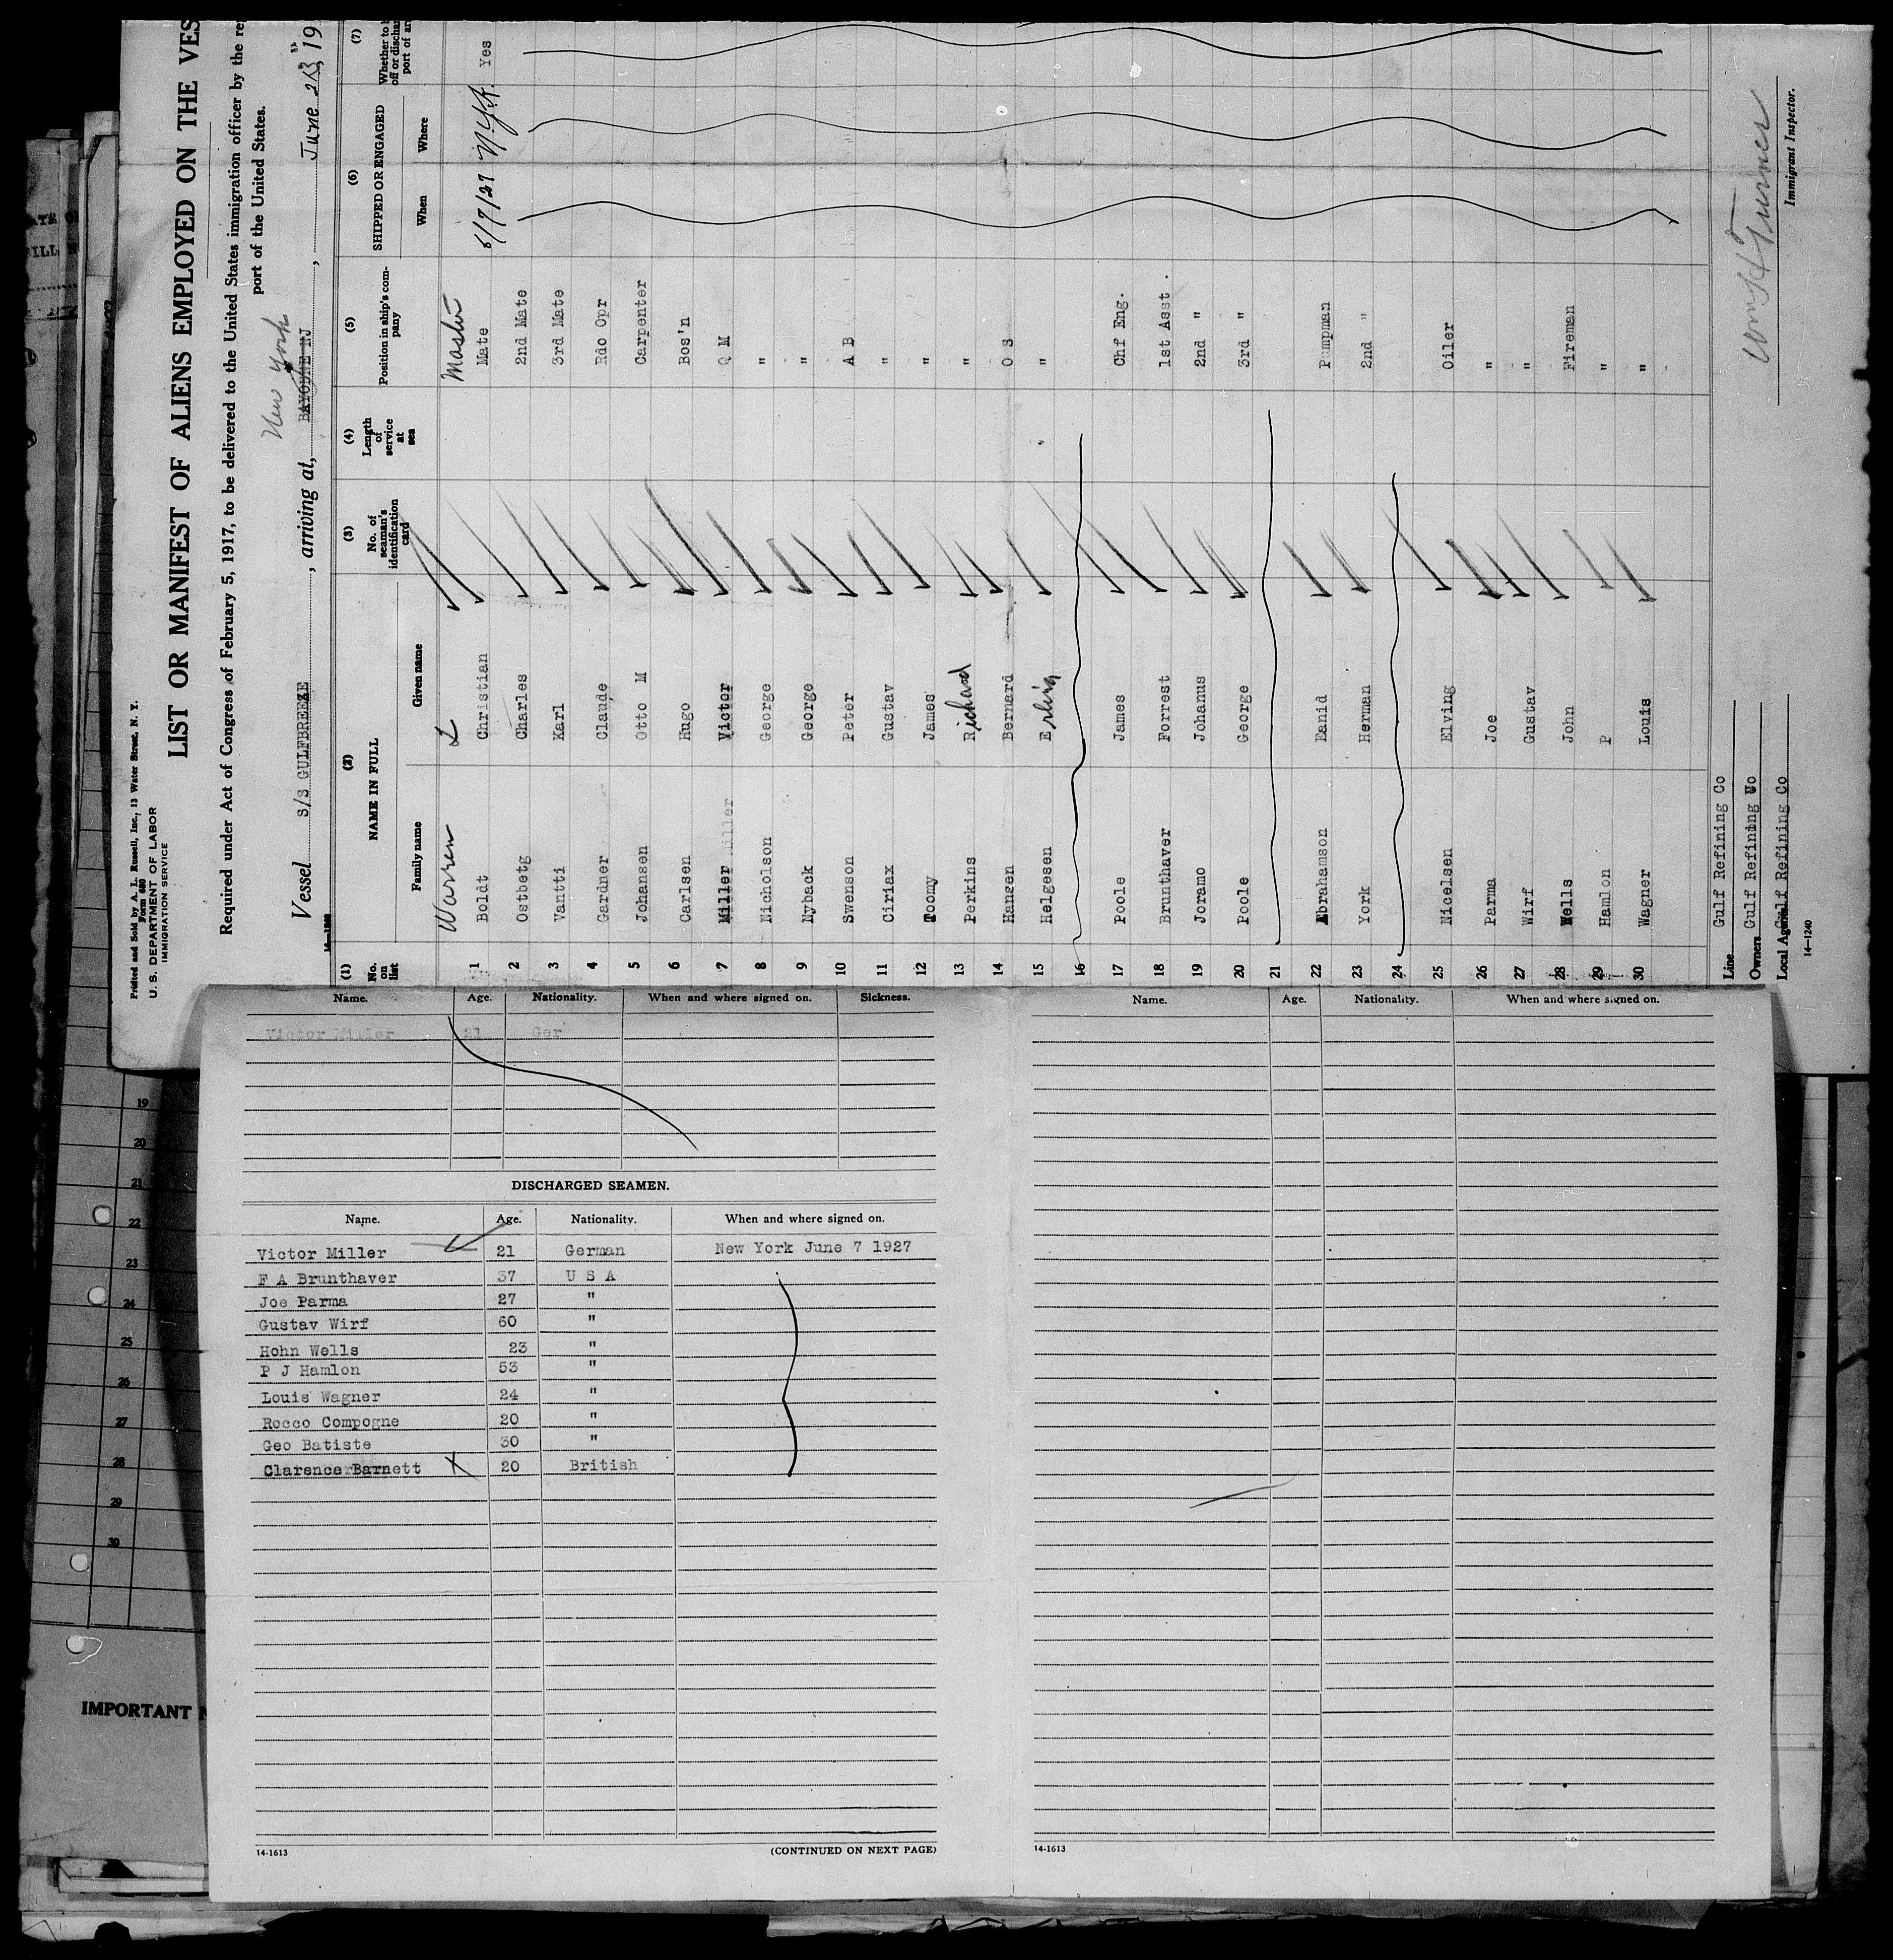 Printed and Sold by A. L. Russell, Inc., 13 Water Street, N. Y.
Form 680
U. S. DEPARTMENT OF LABOR
IMMIGRATION SERVICE
LIST OR MANIFEST OF ALIENS EMPLOYED ON THE VES
Required under Act of Congress of February 5, 1917, to be delivered to the United States immigration officer by the re
port of the United States.
New York
Vessel S/S GULFBREEZE, arriving at, BAYONNE NJ, June 23, 19
(1) (2) (3) (4) (5) (6) (7)
No. on list NAME IN FULL No. of seaman's identification card Length of service at sea Position in ship's company SHIPPED OR ENGAGED Whether to b off or dischar port of ar
Family name Given name When Where
Warren L Master
1 Boldt Christian Mate 6/7/27 N.Y. Yes
2 Ostbetg Charles 2nd Mate
3 Vantti Karl 3rd Mate
4 Gardner Claude Rdo Opr
5 Johansen Otto M Carpenter
6 Carlsen Hugo Bos'n
7 Miller Victor Q M
8 Nicholson George "
9 Nyback George "
10 Swenson Peter A B
11 Ciriax Gustav "
12 Toomy James "
13 Perkins Richard "
14 Hansen Bernard O S
15 Helgesen Erling "
16
17 Poole James Chf Eng.
18 Brunthaver Forrest 1st Asst.
19 Joramo Johanus 2nd "
20 Poole George 3rd "
21
22 Abrahamson Eanid Pumpman
23 York Herman 2nd "
24
25 Nielsen Elving Oiler
26 Parma Joe "
27 Wirf Gustav "
28 Wells John Fireman
29 Hamlon P "
30 Wagner Louis "
Line Gulf Refining Co
Owners Gulf Refining Co
Local Agents Gulf Refining Co
Immigrant Inspector.
14—1240
Name. Age. Nationality. When and where signed on. Sickness.
Victor Miller 21 Ger
DISCHARGED SEAMEN.
Name. Age. Nationality. When and where signed on.
Victor Miller 21 German New York June 7 1927
F A Brunthaver 37 U S A
Joe Parma 27 "
Gustav Wirf 60 "
Hohn Wells 23 "
P J Hamlon 53 "
Louis Wagner 24 "
Rocco Compogne 20 "
Geo Batiste 30 "
Clarence Barnett 20 British
14-1613 (CONTINUED ON NEXT PAGE)
Name. Age. Nationality. When and where signed on.
14-1613
19
20
21
22
23
24
25
26
27
28
29
30
IMPORTANT